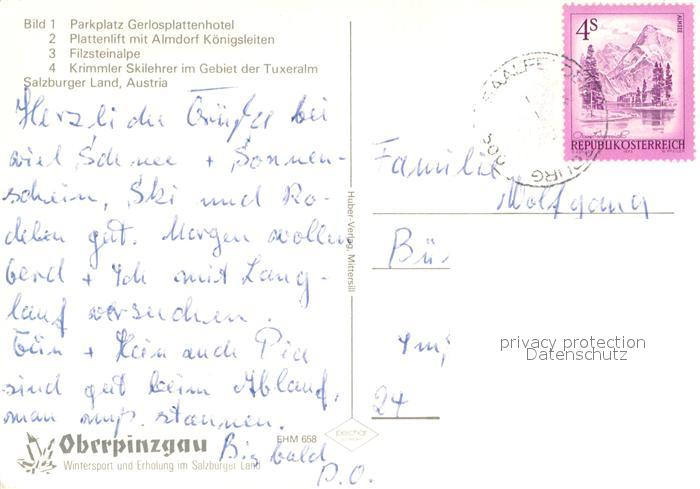 Bild 1 Parkplatz Gerlosplattenhotel
2 Plattenlift mit Almdorf Königsleiten
3 Filzsteinalpe
4 Krimmler Skilehrer im Gebiet der Tuxeralm
Salzburger Land, Austria
Herzliche Grüße bei
viel Schnee + Sonnen-
schein, Ski und Ro-
deln gut. Morgen wollen
+ ich mit Lang-
lauf versuchen.
+ auch Pia
sind gut beim Ablauf,
man muß staunen.
Bis bald
D.O.
Oberpinzgau
Wintersport und Erholung im Salzburger Land
EHM 658
Huber-Verlag, Mittersill
4S
ALMSEE
REPUBLIK ÖSTERREICH
Familie
Wolfgang
Bü
24
privacy protection
Datenschutz